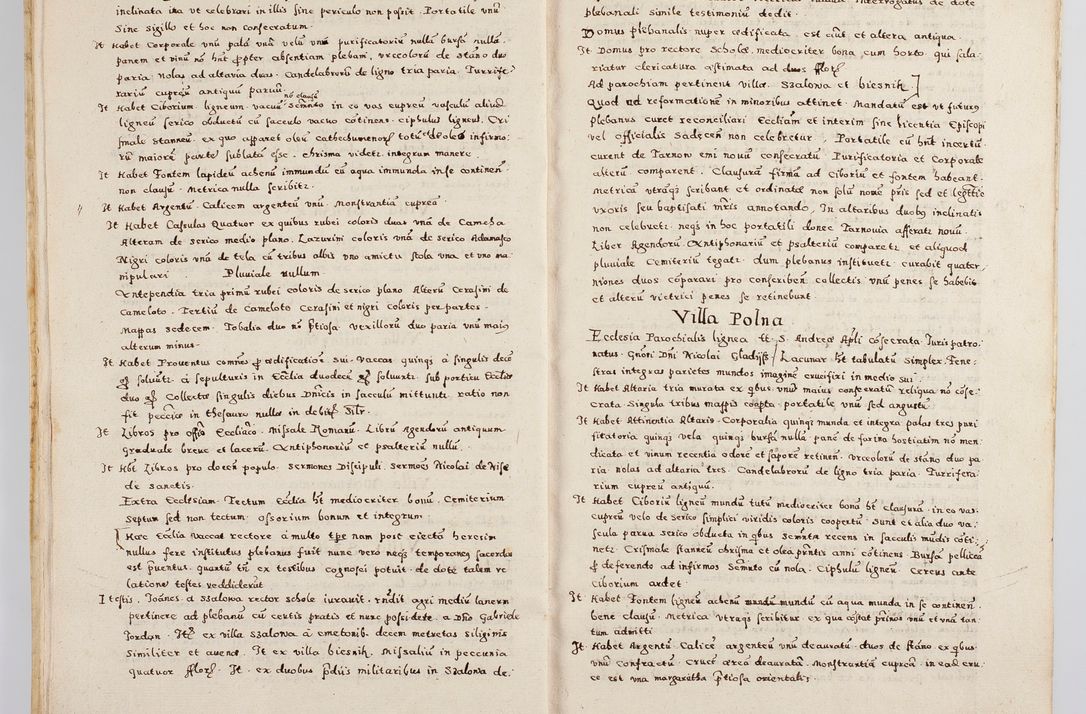 inclinata ita ut celebrari in illis sine periculo non possit. Portatile vnũ
sine sigillo et hoc non consecratum.
It Habet Corporale vnũ palã vnã velũ vnũ purificatoriũ nullũ bursã nullã
panem et vinũ nõ hñt propter absentiam plebani, vrceolorũ de stãno duo
paria nolas ad altaria duas. Candelabrorũ de ligno tria paria. Turrife
rariũ cupreũ antiquũ paruũ
It Habet Ciborium ligneum vacuũ nõ clausũ in eo vas cupreũ vasculũ aliud
ligneũ serico obductũ cũ sacculo vacuo cõtinens. ciphulus ligneus. Cri
smale stanneũ. ex quo apparet oleũ Cathecumenorũ totũ de oleo infirmo
rũ maiorẽ partẽ sublatã esse. chrisma videtr integrum manere.
It Habet Fontem lapideũ ahenũ immundũ cũ aqua immunda in se continen
non clausũ. Metrica nulla scribitr.
It Habet Argentũ. Calicem argenteũ vnũ. Monstrantia cuprea.
It Habet Casulas Quatuor ex quibus rubei coloris duas vnã de Camcha
Alteram de serico medio plano. Lazurini coloris vnã de serico Adamasco
Nigri coloris vnã de tela cũ tribus albis vno amictu stola vna et vno ma
nipulari. Pluuiale nullum.
Antependia tria primũ rubei coloris de serico plano Alterũ Cerasini de
Cameloto. Tertiũ de cameloto cerasini et nigri coloris per partes.
Mappas sedecem. Tobalia duo nõ ptiosa. Vexillorũ duo paria vnũ maius
alterum minus.
It Habet Prouentus comñes p ædificatiõe sui. Vaccas quinqȝ à singulis decẽ
soluũtr. à sepulturis in Ecclia duodecẽ soluũtr. sub porticu Ecclie
duo Collectas singulis diebus Dñicis in sacculũ mittunti. ratio non
fit pecciæ in thesauro nullæ in debitis
It Libros pro offo Eccliaco. Missale Romanũ. Librũ Agendorũ antiquum
graduale breue et lacerũ. Antiphonariũ et psalteriũ nullũ.
It Hbt Libros pro docen populo. Sermones Discipuli. Sermoes Nicolai de Nise
de sanctis.
Extra Ecclesiam. Tectum Ecclia ht mediocriter bonũ. Cemiterium
septum sed non tectum. Ossorium bonum et integrum
Hæc Ecclia vaccat rectore à multo tpe nam post eiectã heresim
nullus fere institutus plebanus fuit nunc vero neqȝ temporaneȝ sacerdos
est puentus. quantũ tñ ex testibus cognosci potuit. de dote talem re
latione testes reddiderunt
I testis. Joãnes a Szalowa rector schole iurauit. rñdit agri mediũ laneum
pertinere ad plebanũ cũ certis pratis et nunc possidete a Dño Gabriele
Jordan. Itẽ ex villa Szalowa à cmetonib. decem metretas siliginis
Similiter et auenæ. It ex villa biesnik. Missaliũ in peccunia
quatuor. It. ex duobus pdiis militaribus in Szalowa de
Interrogatus de dote
plebanali simile testimoniũ dedit.
Domus plebanalis nuper ædificata est aut et altera antiqua.
It Domus pro rectore scholæ mediocriter bona, cum horto qui sala
riatur clericatura æstimata ad duos
Ad parochiam pertinent villæ. Szalowa et biesnik
Quod ad reformatione in minoribus attinet. Mandatũ est vt futurus
plebanus curet reconciliari Eccliam et interim sine licentia Episcopi
vel officialis Sadecen non celebretur. Portatile cũ hñt incertũ
curent de Tarnow emi nouũ consecratũ. Purificatoria et Corporale
alterũ comparent. Clausurã firmã ad Ciboriũ et fontem habeant.
Metricã vtrãqȝ scribant et ordinatæ non solũ nome pris sed et legttie
vxoris seu baptisati mris annotando. In altaribus duobȝ inclinatis
non celebretr. neqȝ in hoc portatili donec Tarnouia afferatr nouũ.
Liber Agendorũ. Antiphonariũ et psalteriũ comparetr et aliquod
pluuiale Cemiteriũ tegatr dum plebanus instituetr curabit quater
niones duos cõparari pro conscriben collectis vnũ penes se habebit
et alterũ vietrici penes se retinebunt
Villa Polna
Ecclesia Parochialis lignea tt S. Andreæ Apli cõsecrata Iuris patro
natus. Gñori Dni Nicolai Gladissz / Lacunar ht tabulatũ simplex. Fene
stras integras parietes mundos imagine crucifixi in medio sui.
It Habet Altaria tria murata ex qbus vnũ maius consecratũ reliqua nõ cõse
crata. Singula tribus mappis coopta. portatile vnũ sed angustũ.
It Habet Attinentia Altaris. Corporalia quinqȝ munda et integra palas tres puri
ficatoria quinqȝ vela quinqȝ bursã nullã panẽ de farina hostiatim nõ men
dicata et vinum recentia odorẽ et sapore retinen. vrceolorũ de stãno duo pa
ria. nolas ad altaria tres. Candelabrorũ de ligno tria paria. Turrifera
rium cupreũ antiquũ.
It Habet Ciboriũ ligneũ mundũ tutũ mediocriter bonã ht clausurã, in eo vas
cupreũ velo de serico simplici viridis coloris coopertũ. Sunt et alia duo va
scula parua serico obducta in qbus recens in sacculis mũdis cõti
netr. Crismale stanneũ chrisma et olea printis anni cõtinens. Bursã pelliceã
p deferendo ad infirmos cũ nola. Ciphulũ ligneũ. Cereus ante
ciborium ardet.
It Habet Fontem ligneũ ahenũ mundũ cũ aqua munda in se continen.
bene clausũ. Metrica vtraqȝ scribitur. ex qua cõstat prinos vnũ et vnã tan
tum admitti
It Habet Argentũ. Calice argenteũ vnũ deauratũ. duos de stãno ex qbus
vnũ confractũ. Crucẽ æreã deauratã. Monstrantiã cupreã in ead cru
ce est vna margaretha ptiosa orientalis.